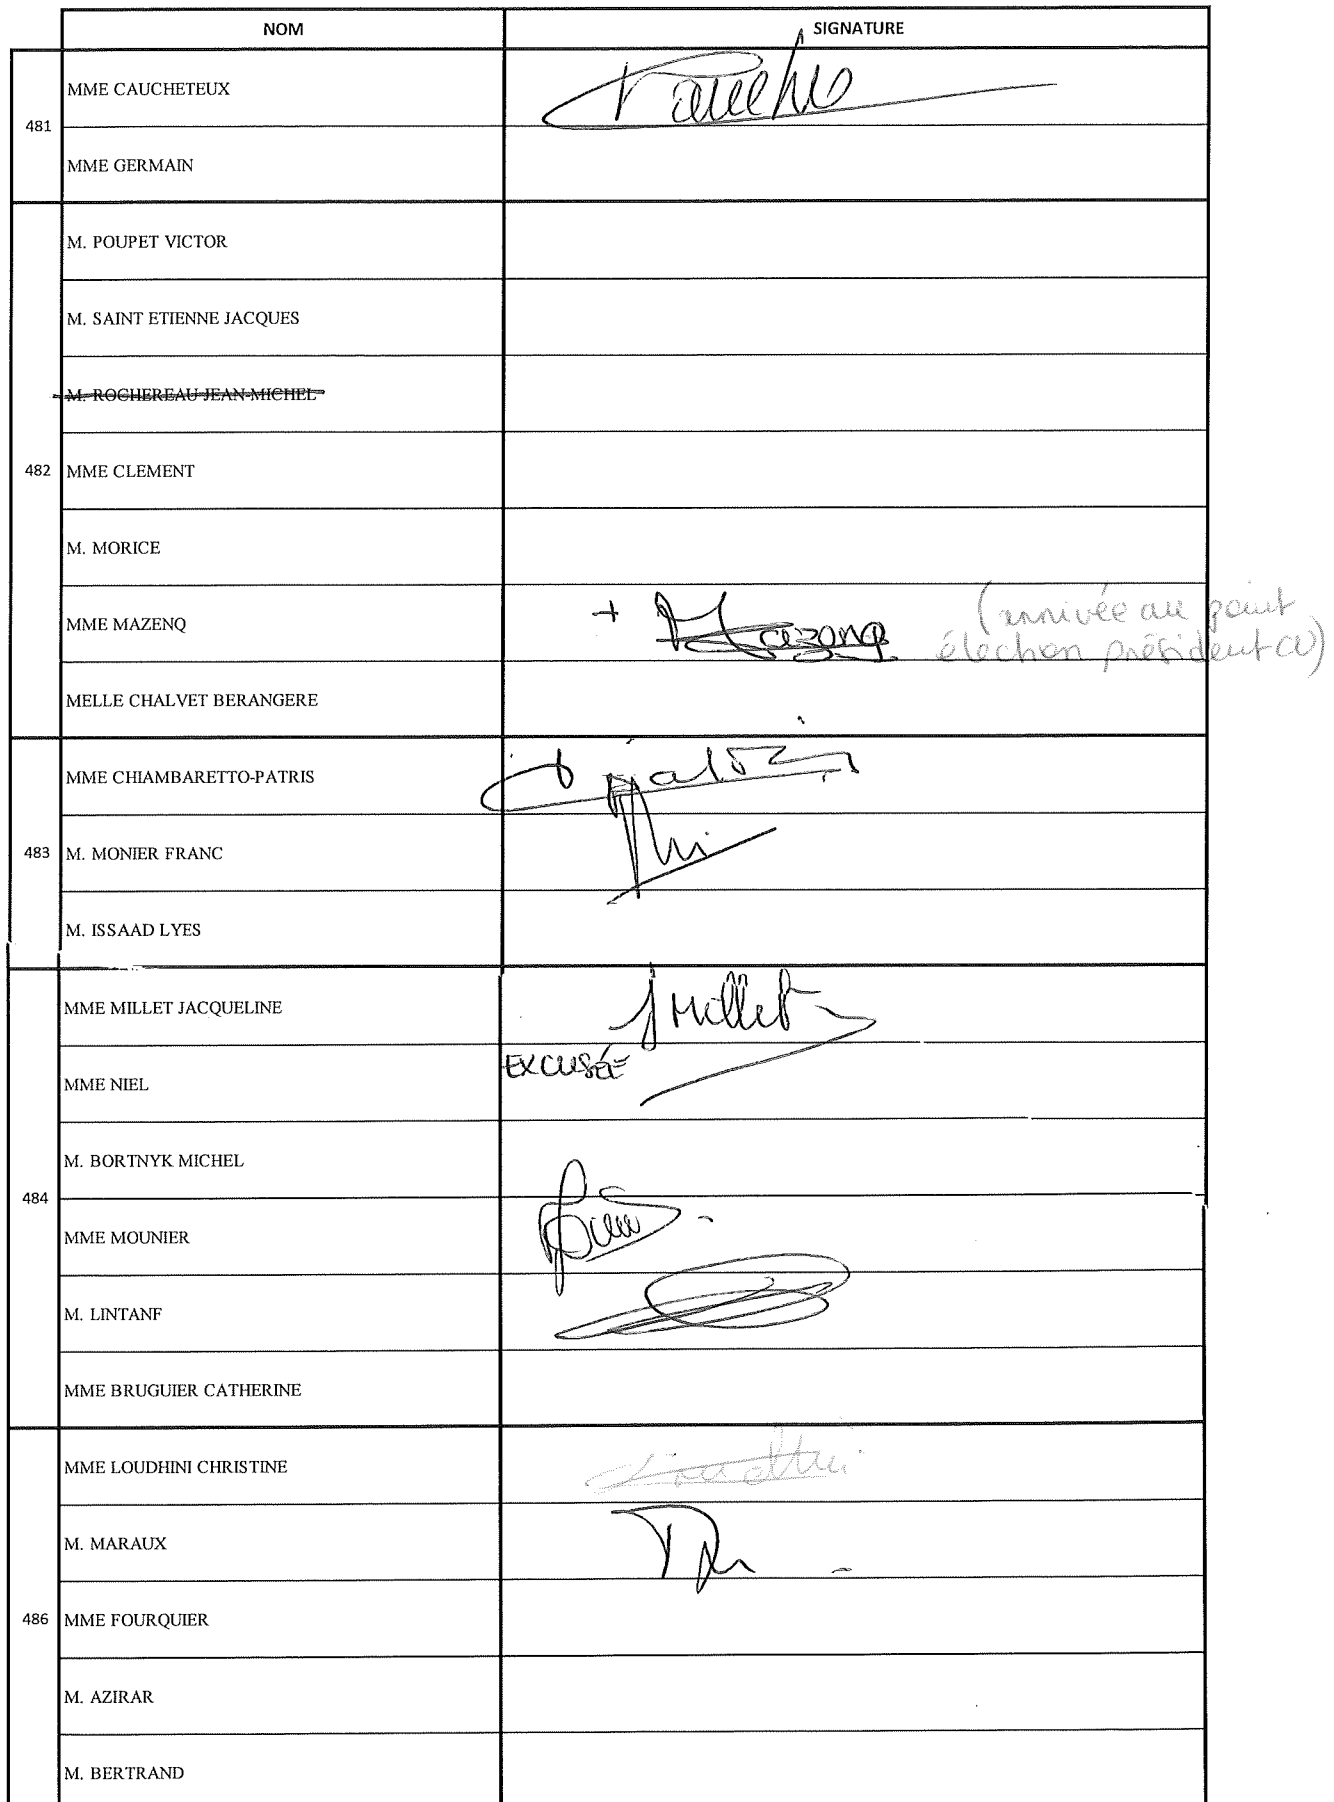 NOM SIGNATURE
MME CAUCHETEUX
481
MME GERMAIN
M. POUPET VICTOR
M. SAINT ETIENNE JACQUES
M. ROCHEREAU JEAN-MICHEL
482 MME CLEMENT
M. MORICE
MME MAZENQ + Mazenq (arrivée au point
élection président CU)
MELLE CHALVET BERANGERE
MME CHIAMBARETTO-PATRIS
483 M. MONIER FRANC
M. ISSAAD LYES
MME MILLET JACQUELINE JMillet
MME NIEL EXCUSÉE
M. BORTNYK MICHEL
484
MME MOUNIER
M. LINTANF
MME BRUGUIER CATHERINE
MME LOUDHINI CHRISTINE
M. MARAUX
486 MME FOURQUIER
M. AZIRAR
M. BERTRAND